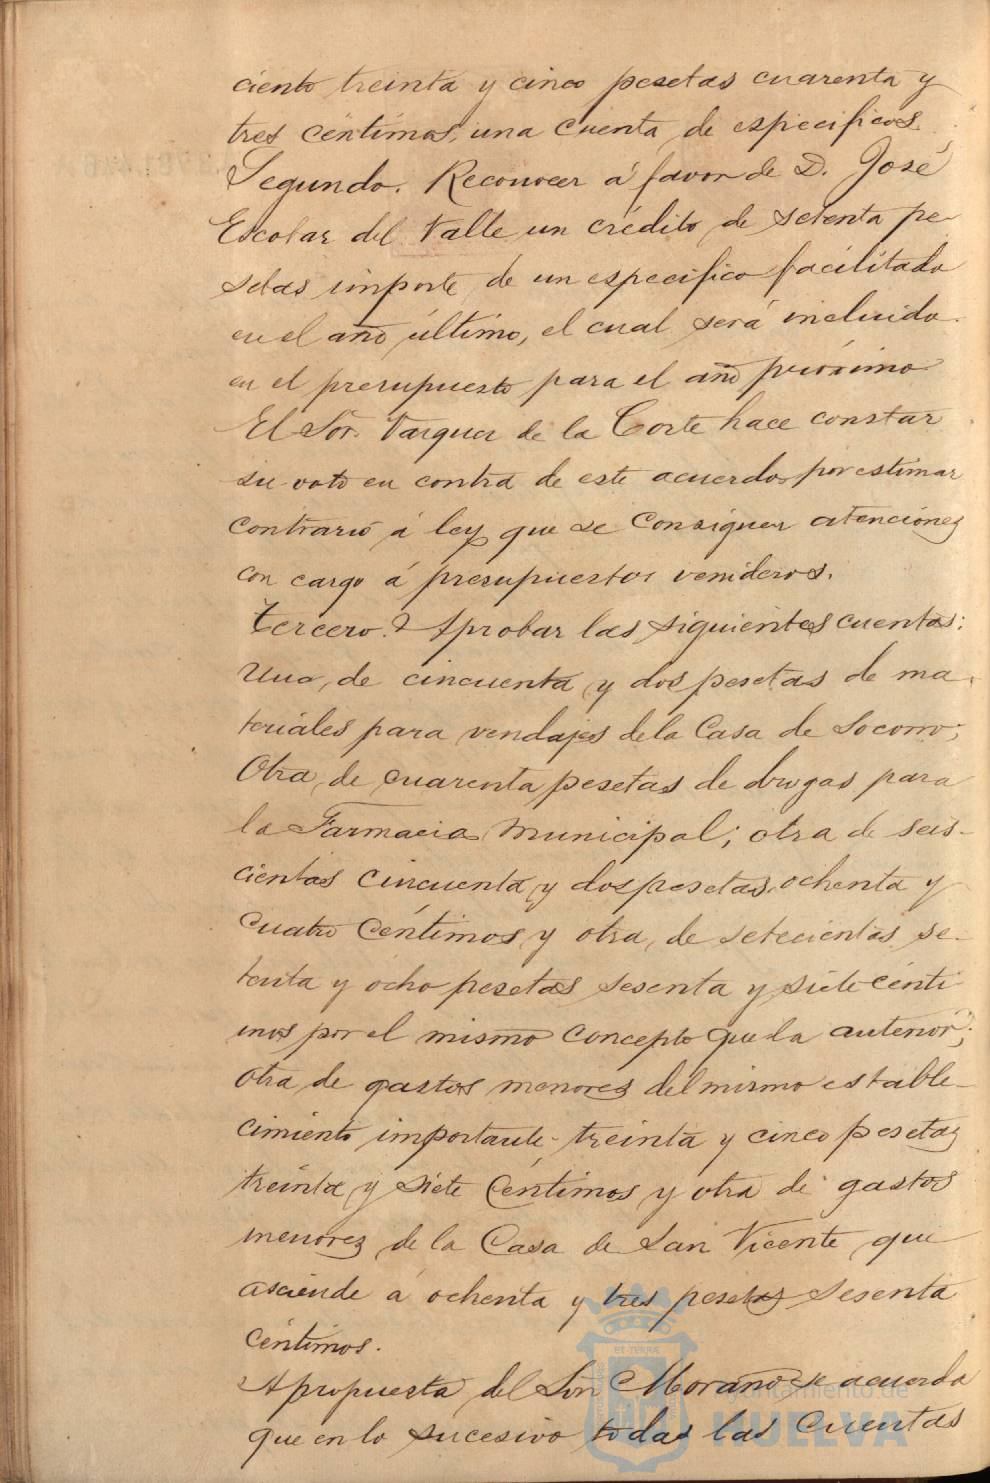 ciento treinta y cinco pesetas cuarenta y
tres céntimos, una cuenta de especificos.
Segundo. Reconocer á favor de D. José
Escobar del Valle un crédito de setenta pe-
setas importe de un especifico facilitado
en el año último, el cual será incluido
en el presupuesto para el año próximo
El Sor. Vazquez de la Corte hace constar
su voto en contra de este acuerdo por estimar
contrario á ley que se consignen atenciones
con cargo á presupuestos venideros.
Tercero. Aprobar las siguientes cuentas:
Una, de cincuenta y dos pesetas de ma-
teriales para vendajes de la Casa de Socorro;
Otra, de cuarenta pesetas de drogas para
la Farmacia Municipal; otra de seis-
cientas cincuenta y dos pesetas, ochenta y
cuatro céntimos y otra, de setecientas se-
tenta y ocho pesetas sesenta y siete cénti
mos por el mismo concepto que la anterior;
otra de gastos menores del mismo estable-
cimiento importante treinta y cinco pesetas
treinta y siete céntimos y otra de gastos
menores de la Casa de San Vicente que
asciende á ochenta y tres pesetas sesenta
céntimos.
A propuesta del Sor Moraño se acuerda
que en lo sucesivo todas las cuentas
Ayuntamiento de
HUELVA